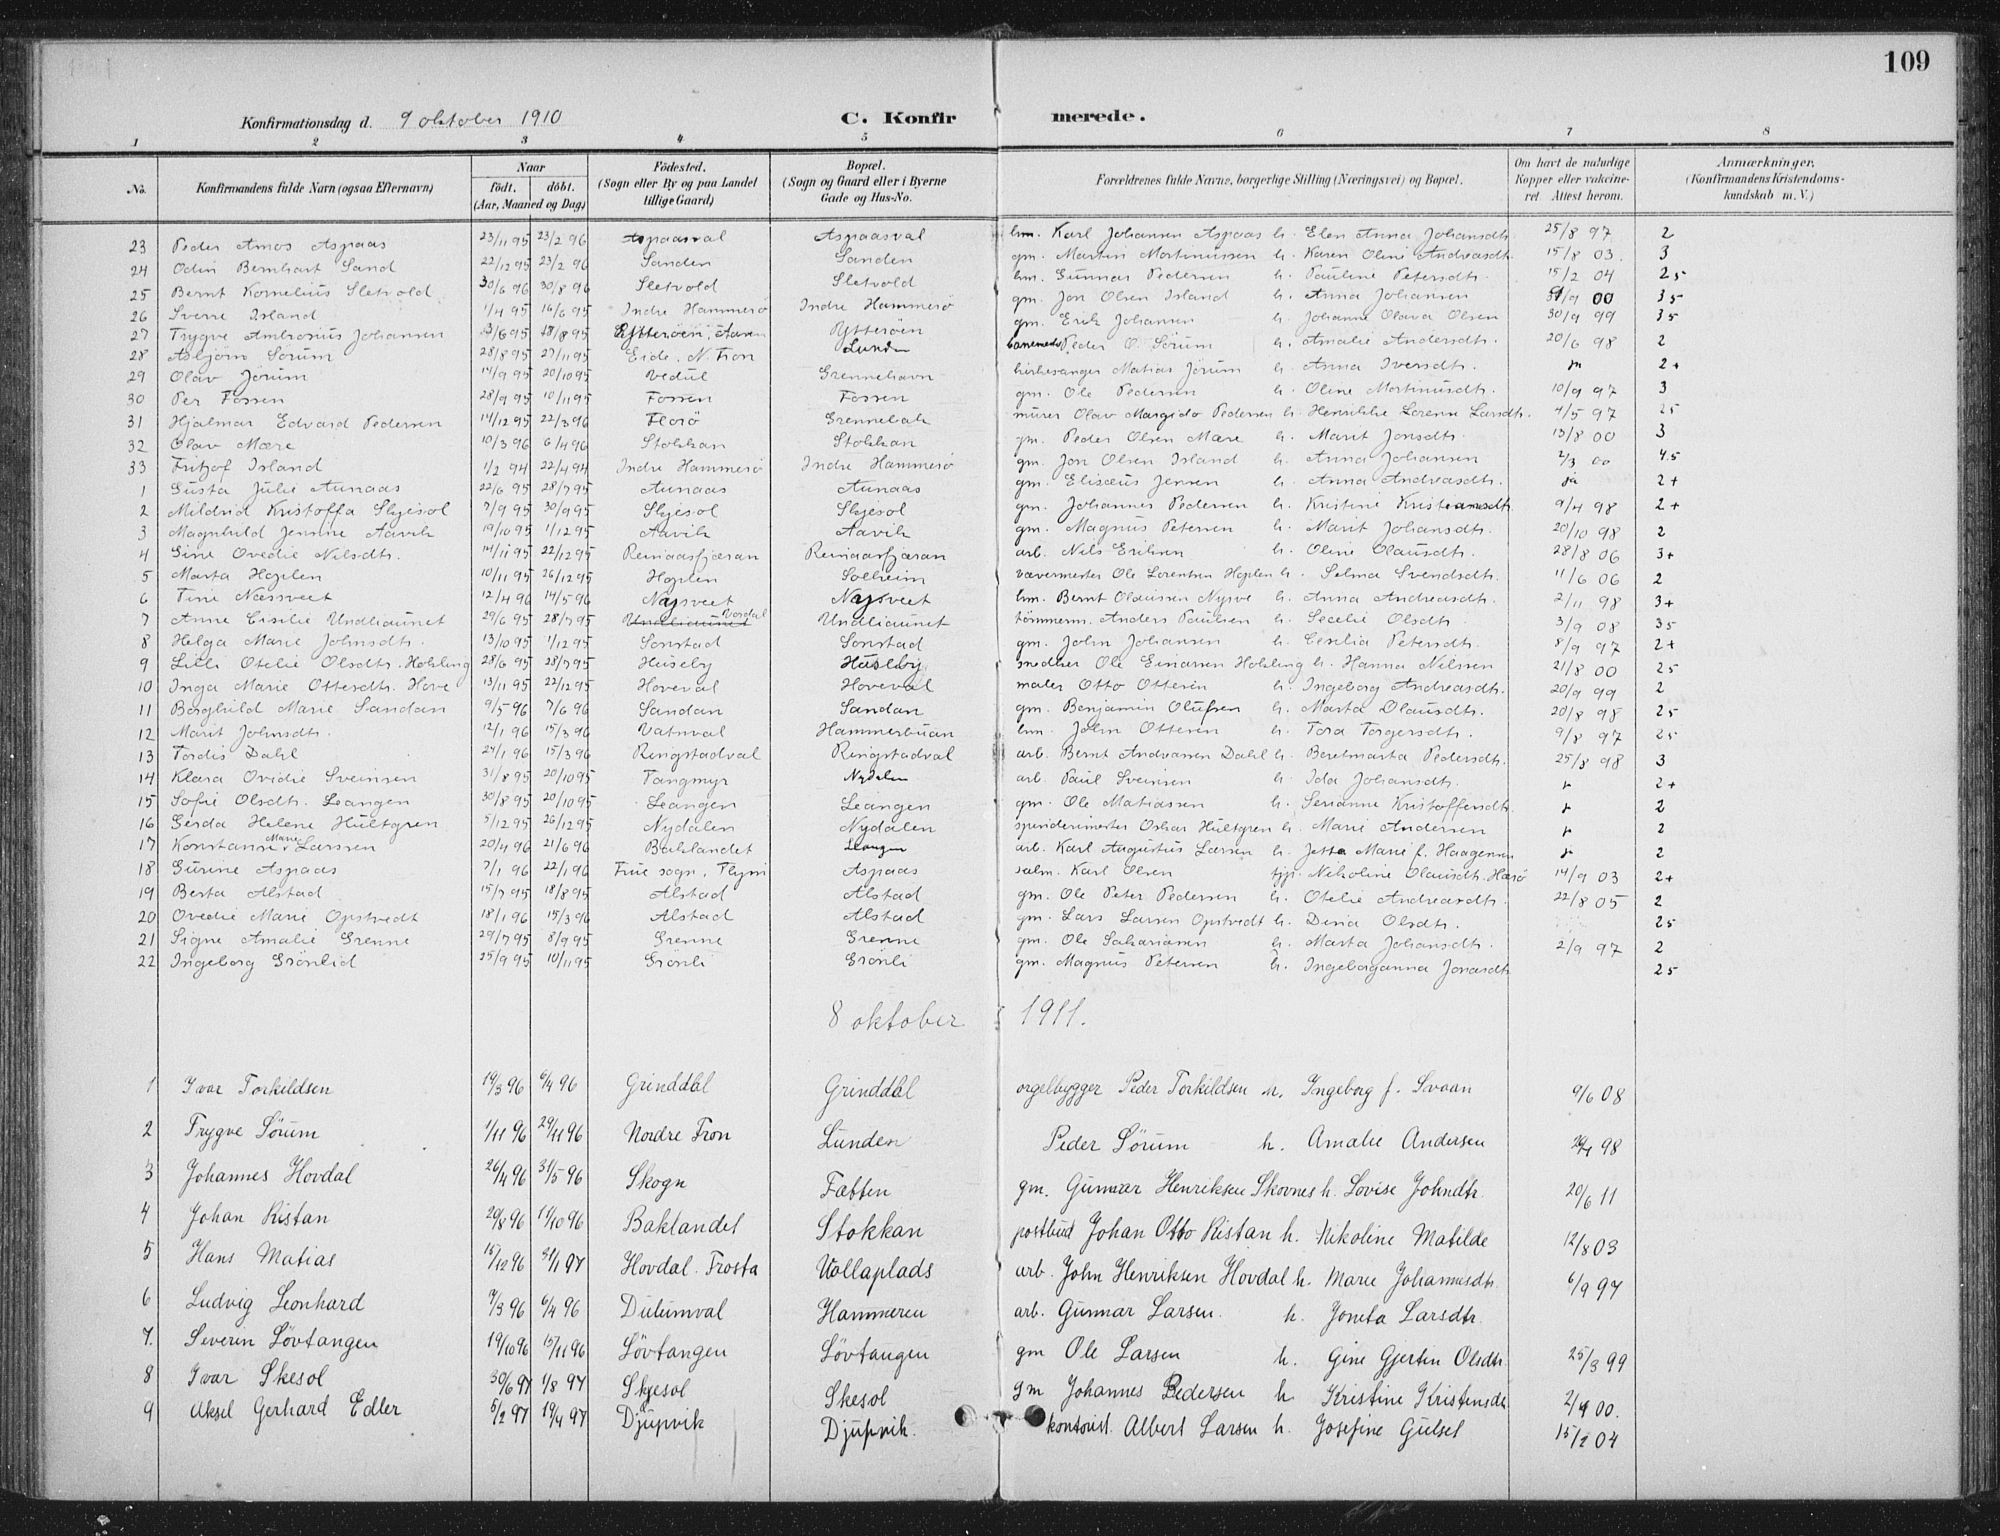 109
Konfirmationsdag d. 9 oktober 1910 C. Konfirmerede.
1 2 3 4 5 6 7 8
No. Konfirmandens fulde Navn (ogsaa Efternavn) Naar født. døbt. (Aar, Maaned og Dag) Födested. (Sogn eller By og paa Landet tillige Gaard) Bopæl. (Sogn og Gaard eller i Byerne Gade og Hus-No. Forældrenes fulde Navne, borgerlige Stilling (Næringsvei) og Bopæl. Om havt de naturlige Kopper eller vaccineret. Attest herom. Anmærkninger. (Konfirmandens Kristendomskundskab m. V.)
23 Peder Amos Aspaas 23/11 95 23/2 96 Aspaasval Aspaasval hm. Karl Johansen Aspaas h. Elen Anna Johansdtr. 25/8 97 2
24 Odin Bernhart Sand 22/12 95 23/2 96 Sanden Sanden gm. Martin Mortinussen h. Karen Oline Andreasdtr. 15/8 03. 3
25 Bernt Kornelius Sletvold 30/6 96 30/8 96 Sletvold Sletvold hm. Gunnar Pedersen h. Pauline Petersdtr. 15/2 04 25
26 Sverre Island 1/4 95 16/6 95 Indre Hammerö Indre Hammerö gm. Jon Olsen Island h. Anna Johansen /9 00 35
27 Trygve Ambrosius Johansen /6 95 18/8 95 Ytterøen Ytterøen gm. Erik Johansen h. Johanne Olava Olsen 30/9 99 35
28 Asbjörn Sörum 28/8 95 27/11 95 Eide, N. Fron Lunden banemester Peder O. Sörum h. Amalie Andersdtr. 20/6 98 2
29 Olav Jörum 14/9 95 20/10 95 Vedul Grennehavn kirkesanger Matias Jörum h. Anna Iversdtr. ja 2+
30 Per Fossen 28/9 95 10/11 95 Fossen Fossen gm. Ole Pedersen h. Oline Mortinusdtr. 10/9 97 3
31 Hjalmar Edvard Pedersen 14/12 95 22/3 96 Florö Grennebak murer Olav Margido Pedersen h. Henrikke Lorense Larsdtr. 4/5 97 25
32 Olav Mære 10/3 96 6/4 96 Stokkan Stokkan gm. Peder Olsen Mære h. Marit Jonsdtr. 13/8 00 3
33 Fritjof Island 1/2 94 22/4 94 Indre Hammerö Indre Hammerö gm. Jon Olsen Island h. Anna Johansen 2/3 00 4.5
1 Gusta Julie Aunaas 22/6 95 28/7 95 Aunaas Aunaas gm. Elisæus Jensen h. Anna Andreasdtr. ja 2+
2 Mildrid Kristoffa Skjesol 7/9 95 30/9 95 Skjesol Skjesol gm. Johannes Pedersen h. Kristine Kristiansdtr. 9/4 98 2+
3 Magnhild Jensine Aavik 19/10 95 1/12 95 Aavik Aavik gm. Magnus Petersen h. Marit Johansdtr. 20/10 98 2
4 Gine Ovedie Nilsdtr. 14/11 95 22/12 95 Reinaasfjæran Reinaasfjæran arb. Nils Eriksen h. Oline Olausdtr. 28/8 06 3+
5 Marta Hoplen 10/11 95 26/12 95 Hoplen Solheim vævermester Ole Lorentsen Hoplen h. Selma Svendsdtr. 11/6 06 2
6 Tine Næssveet 12/4 96 14/5 96 Nysveet Nysveet hm. Bernt Olaussen Nysve h. Anna Andreasdtr. 2/11 98 3+
7 Anne Cisilie Undliaunet 29/6 95 28/7 95 Undliaunet Vordal Undliaunet tömmerm. Anders Paulsen h. Secelie Olsdtr. 3/9 08 35
8 Helga Marie Johnsdtr. 13/10 95 1/12 95 Sonstad Sonstad gm. John Johansen h. Cesilia Petersdtr. 8/9 97 2+
9 Lilli Otelie Olsdtr. Holsling 28/6 95 28/7 95 Huseby Huseby snedker Ole Einarsen Holsling h. Hanna Nilssen 21/8 00 25
10 Inga Marie Ottersdtr. Hove 13/11 95 22/12 95 Hoveval Hoveval maler Otto Ottesen h. Ingeborg Andreasdtr. 20/9 99 2
11 Borghild Marie Sandan 9/5 96 7/6 96 Sandan Sandan gm. Benjamin Olufsen h. Marta Olausdtr. 20/8 98 25
12 Marit Johnsdtr. 12/1 96 15/3 96 Vatnval Hammerbuan hm. John Ottesen h. Tora Torgersdtr. 9/8 97 25
13 Tordis Dahl 24/1 96 15/3 96 Ringstadval Ringstadval arb. Bernt Andreasen Dahl h. Beretmarta Pedersdtr. 25/8 98 3
14 Klara Ovidie Sveinsen 31/8 95 20/10 95 Tangmyr Nydalen arb. Paul Sveinsen h. Ida Johansdtr. 2+
15 Sofie Olsdtr. Leangen 30/8 95 20/10 95 Leangen Leangen gm. Ole Matiassen h. Serianne Kristoffersdtr. 2
16 Gerda Helene Hultgren 5/12 95 26/12 95 Nydalen Nydalen spinderimester Oskar Hultgren h. Marie Andersen 2
17 Konstance Marie Larssen 20/4 96 21/6 96 Baklandet Leangen arb. Karl Augustus Larsen h. Jetta Marie f. Haagensen 2
18 Gurine Aspaas 7/1 96 22/1 96 Frue sogn, Thjm Aspaas salm. Karl Olsen tjp. Nikoline Olausdtr. 14/9 03 2+
19 Berta Alstad 15/7 95 18/8 95 Alstad Alstad gm. Ole Peter Pedersen h. Otelie Andreasdtr. 22/8 05 2
20 Ovedie Marie Opstvedt 18/1 96 15/3 96 Alstad Alstad gm. Lars Larsen Opstvedt h. Dina Olsdtr. 25
21 Signe Amalie Grenne 29/7 95 8/9 95 Grenne Grenne gm. Ole Sakariasen h. Marta Johansdtr. 2/9 97 2
22 Ingeborg Grönlid 25/9 95 10/11 95 Grönli Grönli gm. Magnus Petersen h. Ingeborganna Jonasdtr 25
8 oktober 1911.
1 Ivar Torkildsen 19/3 96 6/4 96 Grinddal Grinddal orgelbygger Peder Torkildsen h. Ingeborg f. Svaan 9/6 08
2 Trygve Sörum 1/11 96 29/11 96 Nordre Fron Lunden Peder Sörum h. Amalie Andersen 98
3 Johannes Hovdal 26/4 96 31/5 96 Skogn Fætten gm. Gunnar Henriksen Skovnes h. Lovise Johndtr. 20/6 11
4 Johan Ristan 20/8 96 11/10 96 Baklandet Stokkan postbud Johan Otto Ristan h. Nikoline Matilde 12/8 03
5 Hans Matias 15/12 96 31/1 97 Hovdal. Frosta Vollaplads arb. John Henriksen Hovdal h. Marie Johannesdtr. 6/9 97
6 Ludvig Leonhard 7/3 96 6/4 96 Dulumval Hammeren arb. Gunnar Larsen. h. Joneta Larsdtr.
7. Severin Lövtangen 19/10 96 15/11 96 Lövtangen Lövtangen gm Ole Larsen h. Gine Gjertin Olsdtr. 25/3 99
8 Ivar Skesol 30/6 97 1/8 97 Skesol Skesol gm Johannes Pedersen h Kristine Kristensdtr 2/9 00.
9 Aksel Gerhard Edler 5/2 97 19/4 97 Djupvik Djupvik. kontorist. Albert Larsen h. Josefine Gulset 15/2 04